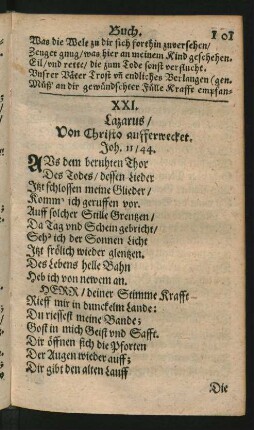 Buch. 101
Was die Welt zu dir sich forthin zuversehen/
Zeuget gnug/was hier an meinem Kind geschehen.
Eil/vnd rette/ die zum Tode sonst verflucht.
Vnsrer Väter Trost vñ endliches Verlangen/(gen.
Müß' an dir gewündschter Fülle Krafft empfan-
XXI.
Lazarus/
Von Christo aufferwecket.
Joh. 11/44.
AVs dem beruhten Thor
Des Todes/ dessen Lieder
Itzt schlossen meine Glieder/
Komm' ich geruffen vor.
Auff solcher Stille Grentzen/
Da Tag vnd Schein gebricht/
Seh' ich der Sonnen Licht
Itzt frölich wieder glentzen.
Des Lebens helle Bahn
Heb ich von newem an.
HERR/ deiner Stimme Krafft
Rieff mir in dunckelm Lande:
Du rissest meine Bande;
Gost in mich Geist vnd Safft.
Dir öffnen sich die Pforten
Der Augen wieder auff;
Dir gibt den alten Lauff
Die